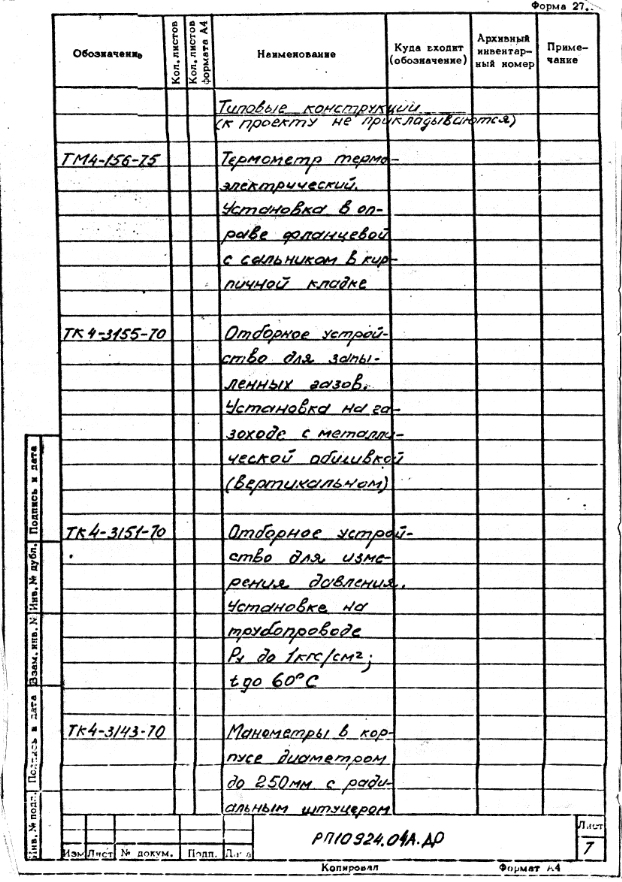 Форма 27
Обозначение
Кол. листов
Кол. листов формата А4
Наименование
Куда входит (обозначение)
Архивный инвентарный номер
Примечание
Типовые конструкции
(к проекту не прикладываются)
ТМ4-156-75
Термометр термо-
электрический.
Установка в оп-
раве фланцевой
с сальником в кир-
пичной кладке
ТК4-3155-70
Отборное устрой-
ство для запы-
ленных газов.
Установка на га-
зоходе с металли-
ческой обшивкой
(вертикальном)
ТК4-3151-70
Отборное устрой-
ство для изме-
рения давления.
Установке на
трубопроводе
Ру до 1кгс/см²;
t до 60°С
ТК4-3143-70
Манометры в кор-
пусе диаметром
до 250мм с ради-
альным штуцером
Инв. № подл.
Подпись и дата
Взам. инв. №
Инв. № дубл.
Подпись и дата
РП10924.04А.ДР
Лист
7
Изм Лист № докум. Подп. Дата
Копировал
Формат А4